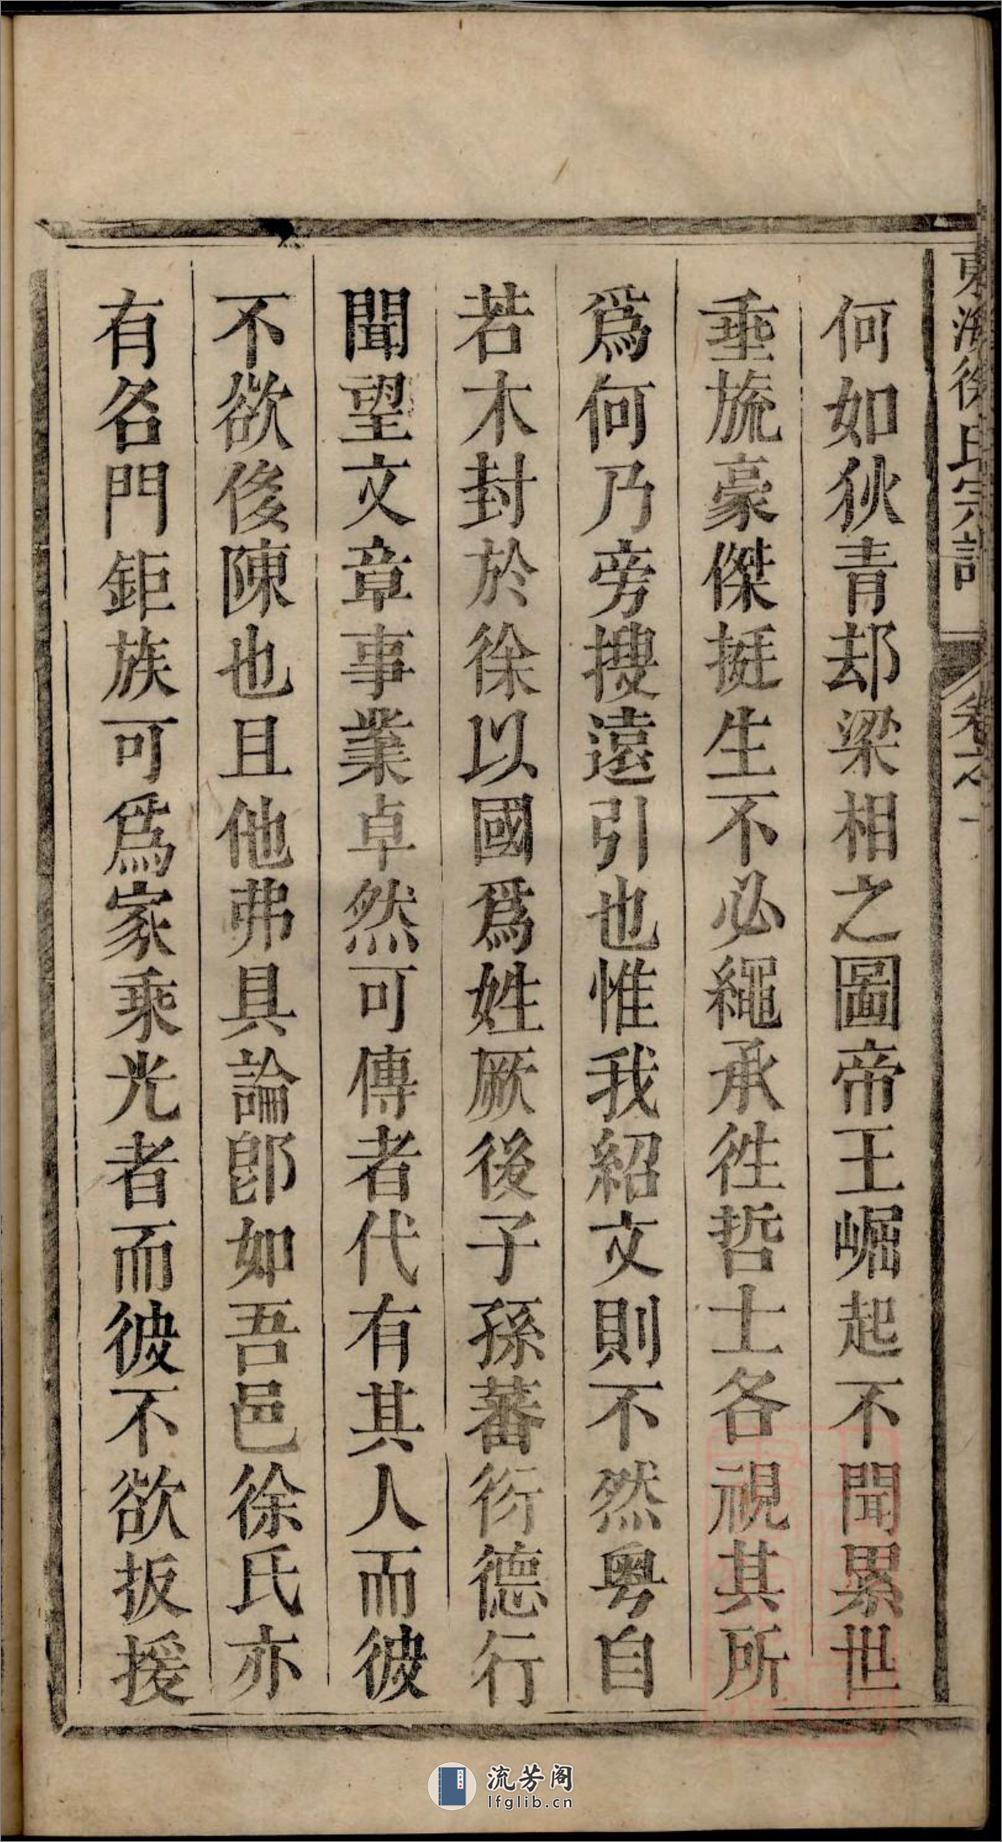 東海徐氏宗譜 卷之一
何如狄青却梁相之圖帝王崛起不聞累世
垂旒豪傑挺生不必繩承徃哲士各視其所
爲何乃旁搜遠引也惟我紹文則不然粵自
若木封於徐以國爲姓厥後子孫蕃衍德行
聞望文章事業卓然可傳者代有其人而彼
不欲俊陳也且他弗具論卽如吾邑徐氏亦
有名門鉅族可爲家乘光者而彼不欲扳援
流芳阁
lfglib.cn